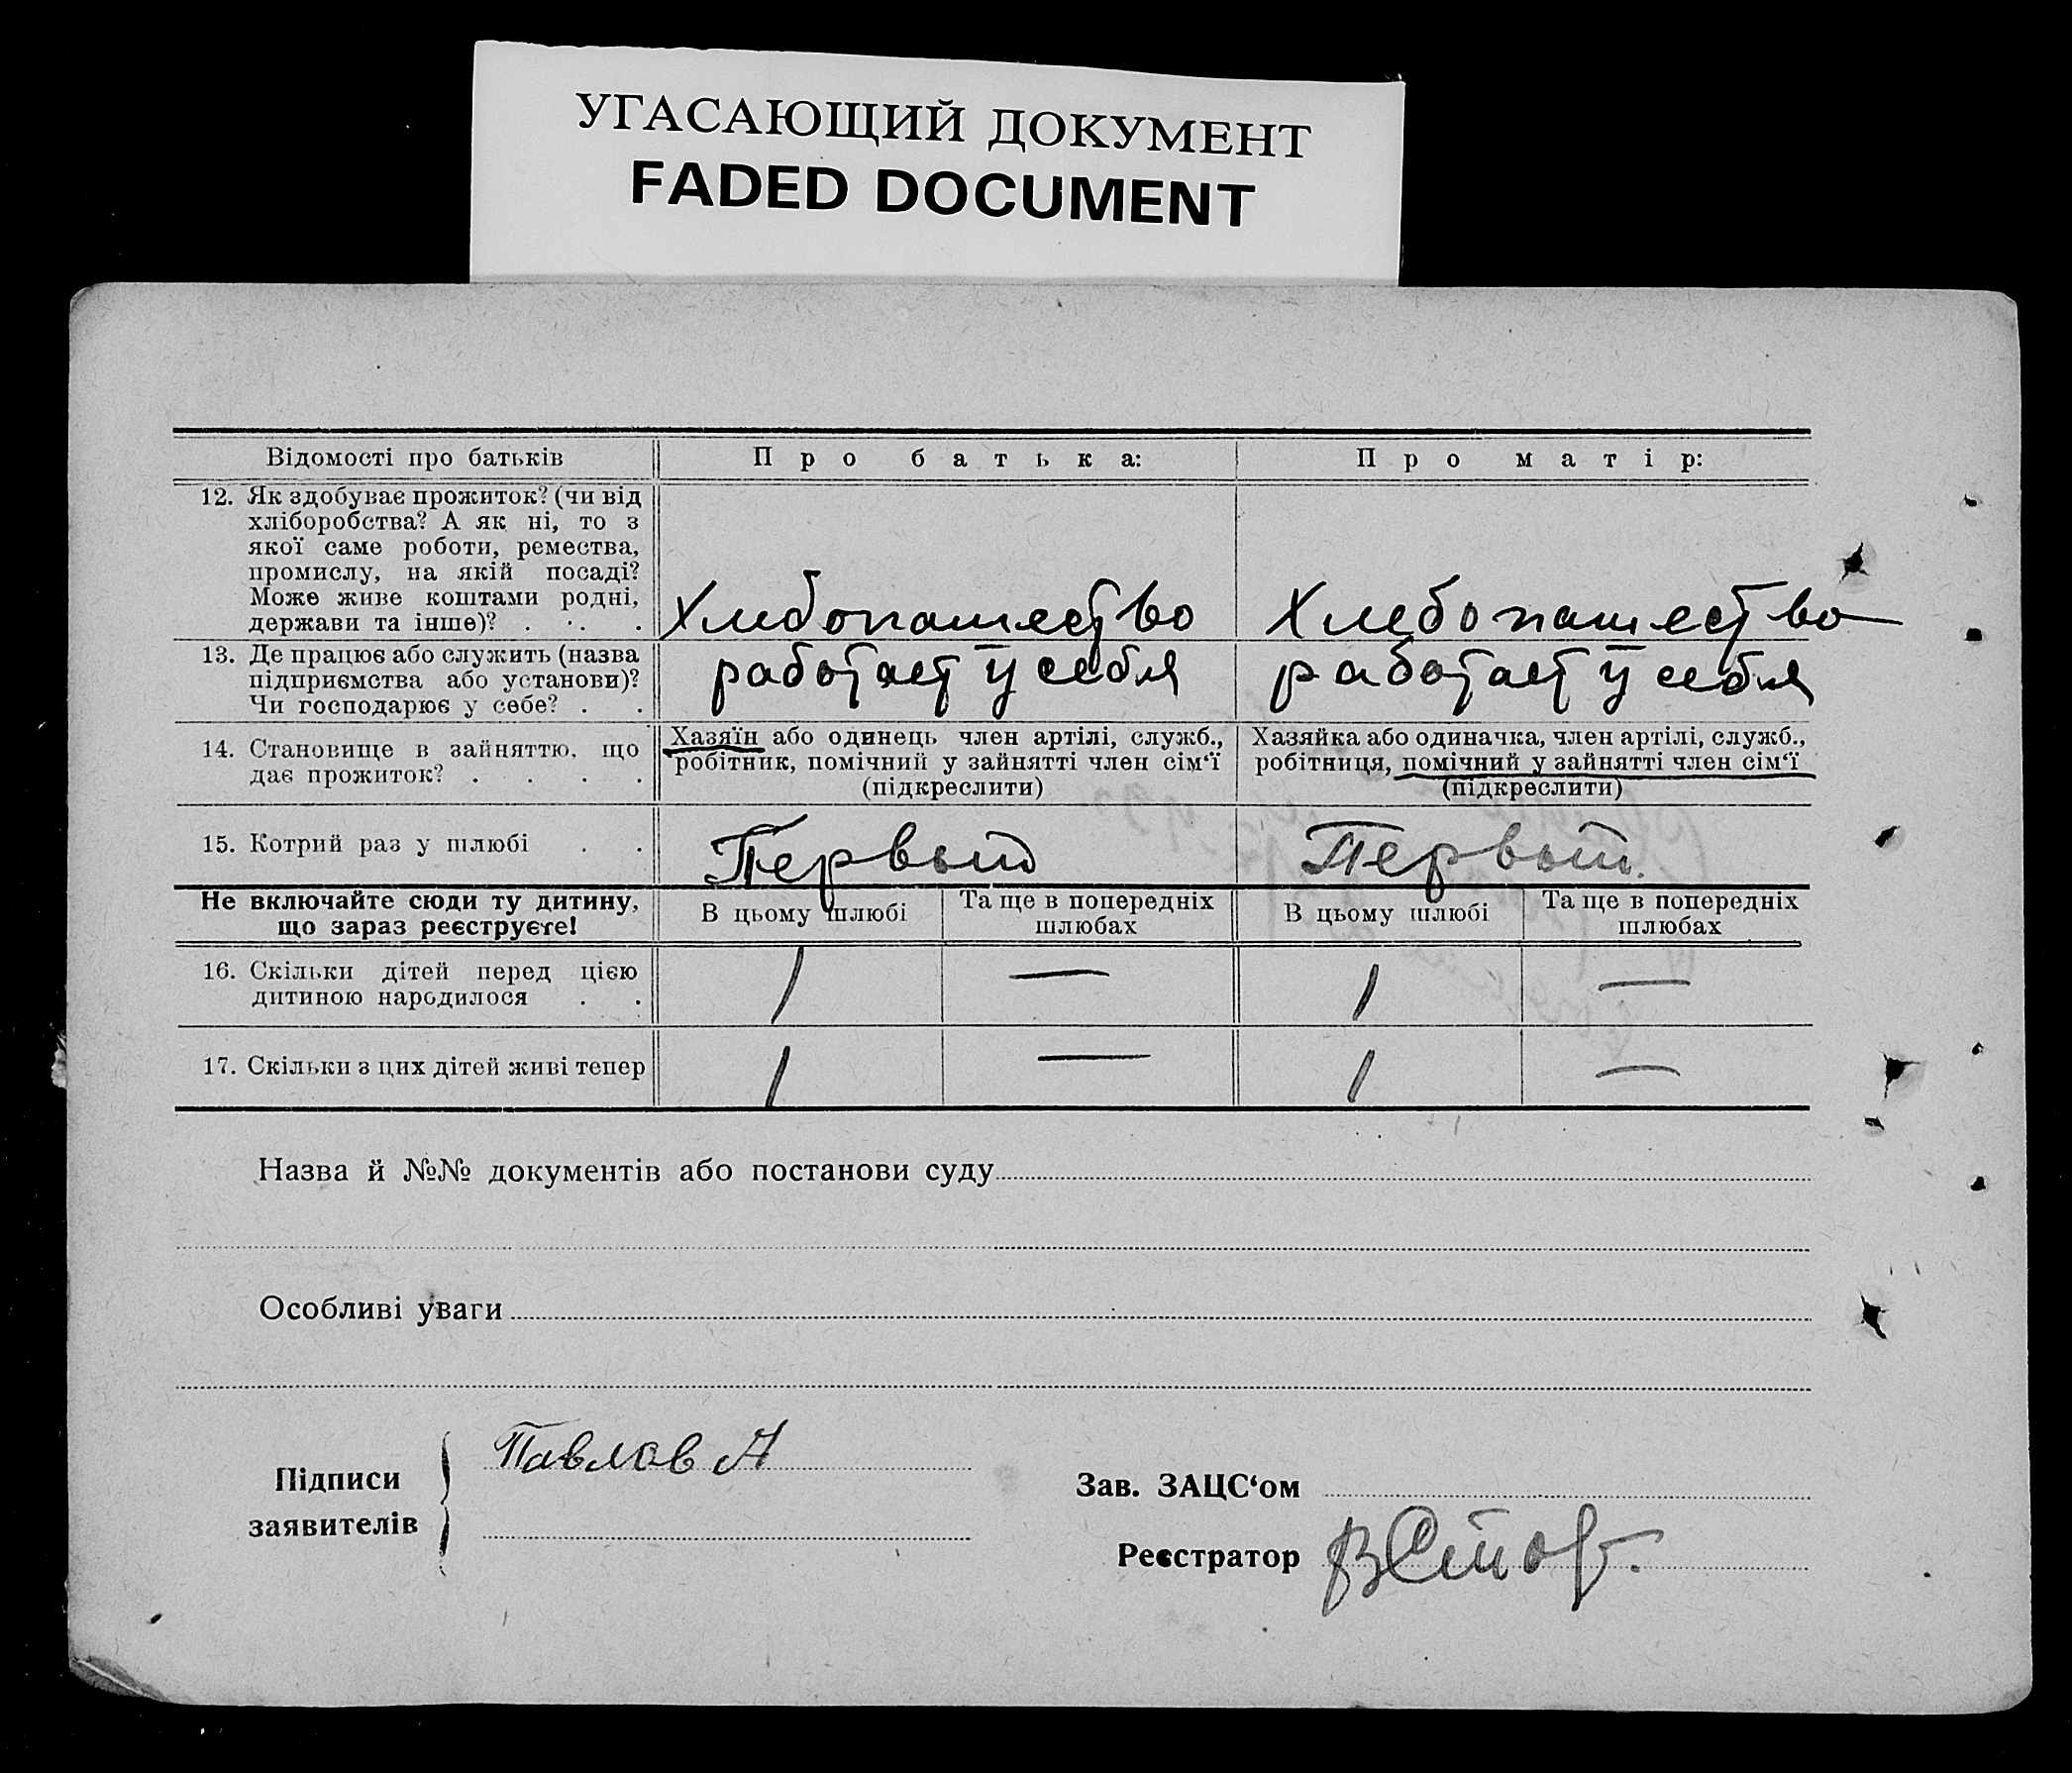 УГАСАЮЩИЙ ДОКУМЕНТ
FADED DOCUMENT
Відомості про батьків
Про батька:
Про матір:
12. Як здобуває прожиток? (чи від
хліборобства? А як ні, то з
якої саме роботи, ремества,
промислу, на якій посаді?
Може живе коштами родні,
держави та інше)? . . .
Хлебопашество
Хлебопашество
13. Де працює або служить (назва
підприємства або установи)?
Чи господарює у себе? . .
работает у себя
работает у себя
14. Становище в зайняттю, що
дає прожиток? . . . .
Хазяїн або одинець член артілі, служб.,
робітник, помічний у зайнятті член сім‘ї
(підкреслити)
Хазяйка або одиначка, член артілі, служб.,
робітниця, помічний у зайнятті член сім‘ї
(підкреслити)
15. Котрий раз у шлюбі . .
Первый
Первый
Не включайте сюди ту дитину,
що зараз реєструєте!
В цьому шлюбі
Та ще в попередніх
шлюбах
В цьому шлюбі
Та ще в попередніх
шлюбах
16. Скільки дітей перед цією
дитиною народилося . .
1 — 1 —
17. Скільки з цих дітей живі тепер
1 — 1 —
Назва й №№ документів або постанови суду
Особливі уваги
Підписи
заявителів
Павлов А
Зав. ЗАЦС‘ом
Реєстратор